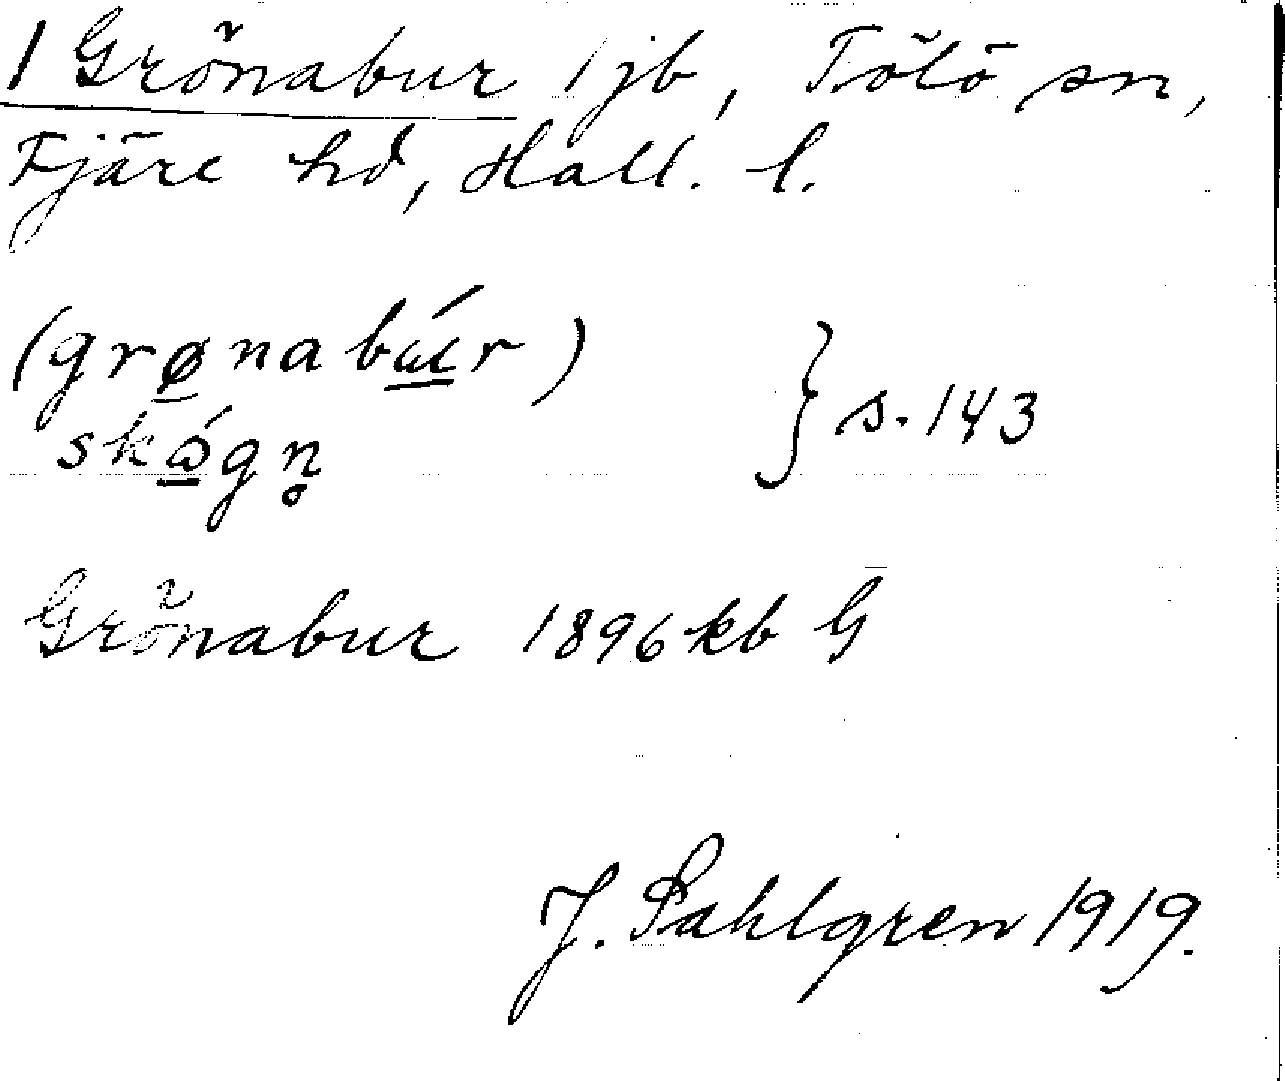 1 Grönabur 1 jb, Tölö sn,
Fjäre hd, Hall. l.
(grønabúr)
skógn̥ } s. 143
Grönabur 1896 kb G
J. Sahlgren 1919.